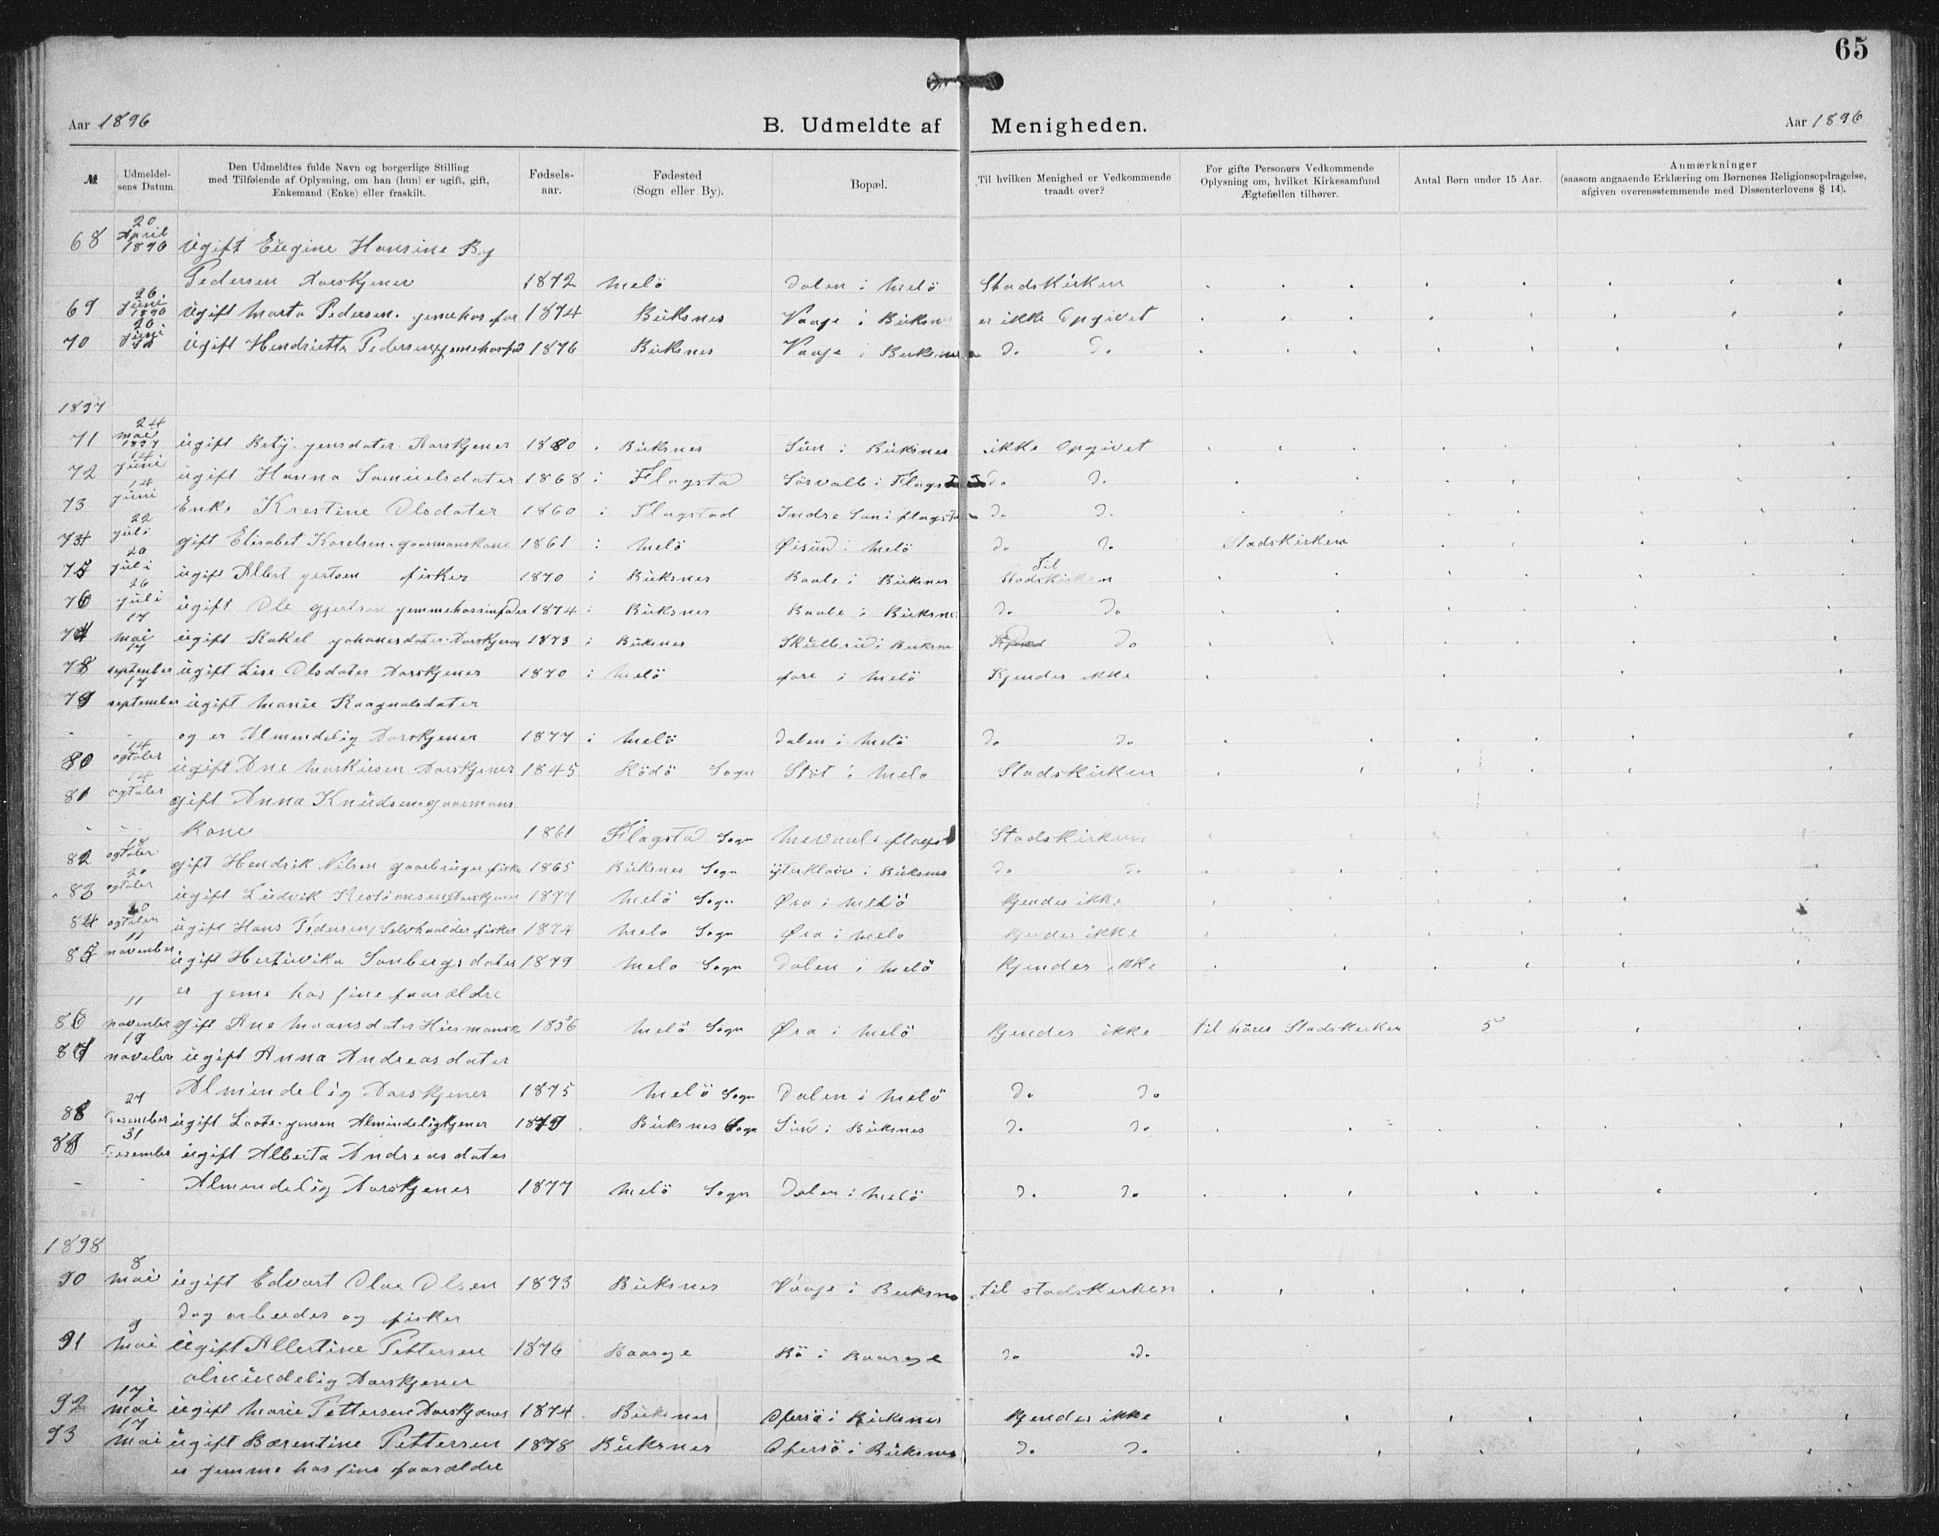 65
Aar 1896 B. Udmeldte af Menigheden. Aar 1896
№ Udmeldelsens Datum Den Udmeldtes fulde Navn og borgerlige Stilling med Tilføiende af Oplysning, om han (hun) er ugift, gift, Enkemand (Enke) eller fraskilt. Fødselsaar. Fødested (Sogn eller By). Bopæl. Til hvilken Menighed er Vedkommende traadt over? For gifte Personers Vedkommende Oplysning om, hvilket Kirkesamfund Ægtefællen tilhører. Antal Børn under 15 Aar. Anmærkninger (saasom angaaende Erklæring om Børnenes Religionsopdragelse, afgiven overensstemmende med Dissenterlovens § 14).
68 20 April 1896 ugift Eugine Hansine By
Pedersen Aarskjener 1872 Melö Dalen i Melö Stadskirken
69 26 Juni 1896 ugift Marta Pedersen. jemehos far 1874 Buksnes Vaaje i Buksn er ikke Opgivet
70 26 Juni ugift Hendrietta Pedersen 1876 Buksnes Vaaje i Buksnes do do
1897
71 24 mai 1897 ugift Bety. jensdater. Aarskjener 1880 Buksnes Sun i Buksnes ikke Opgivet
72 14 juni ugift Hanna Samuelsdater 1868 i Flagsta Sörvalle i Flags do do
73 14 juni Enke Krestine Olsdater 1860 i Flagstad Indre Sun i flagsta do do
74 22 juli gift Elisabet Karelsen. gaarmanskone 1861 i Melö Øisund i Melö do do Stadskirken
75 20 juli ugift Albert gertsen fisker 1870 i Buksnes Baale i Buksnes Til Stadskirken
76 26 juli ugift Ole gjertsen jemmehossinfader 1874 i Buksnes Baale i Buksnes do do
77 17 mai ugift Rakel johanesdater. Aarskjener 1873 i Buksnes Skullbrud i Buksne do
78 september ugift Lise Olsdater Aarskjener 1870 i Melö fore i Melö Kjendes ikke
79 17 september ugift Marie Raagnalsdater
og er Almendelig Aarskjener 1877 i Melö Dalen i Melö do do
80 14 ogtober ugift Ane Markusen Aarskjener 1845 Rödö Sogn Stöt i Melö Stadskirken
81 14 ogtober gift Anna Knudsen gaarmans
kone 1861 Flagstad Sogn flagst Stadskirken
82 18 ogtober gift Hendrik Nilsen gaarbruger fisker 1865 Buksnes Sogn i Buksnes do do
83 20 ogtober ugift Ludvik Krestiansen Aarskjener 1877 Melö Sogn Øra i Melö kjendes ikke
84 20 ogtober ugift Hans Pedersen, Selvhaalder fisker 1874 Melö Sogn Øra i Melö kjendes ikke
85 11 november ugift Hertuvika Sonbergsdater 1879 Melö Sogn Dalen i Melö kjendes ikke
er jeme hos sine faarældre
86 11 november gift Ane Maansdater Husmansk 1856 Melö Sogn Øra i Melö kjendes ikke til hörer Stadskerken 5
87 19 noveber ugift Anna Andreasdater
Almindelig Aarskjener 1875 Melö Sogn Dalen i Melö do do
88 27 Desember ugift Laote. jensen Almindeligkjener 1879 Buksnes Sogn Sun i Buksnes do do
89 31 Desember ugift Alberta Andreasdater
Almindelig Aarskjener 1877 Melö Sogn Dalen i Melö do do
1898
90 8 mai ugift Edvart Olae Olsen 1873 Buksnes Vaaje i Buksne til stadskerken
dag arbeider og fisker
91 9 mai ugift Albertine Pettersen 1876 Baarge Bö i Baarge do do
almindelig Aarskjener
92 17 mai ugift Marie Pettersen Aarskjener 1874 Buksnes Ofersö i Buksnes kjendes ikke
93 17 mai ugift Bærentine Pettersen 1878 Buksnes Ofersö i Buksnes do do
er jemme hos sine faarældre